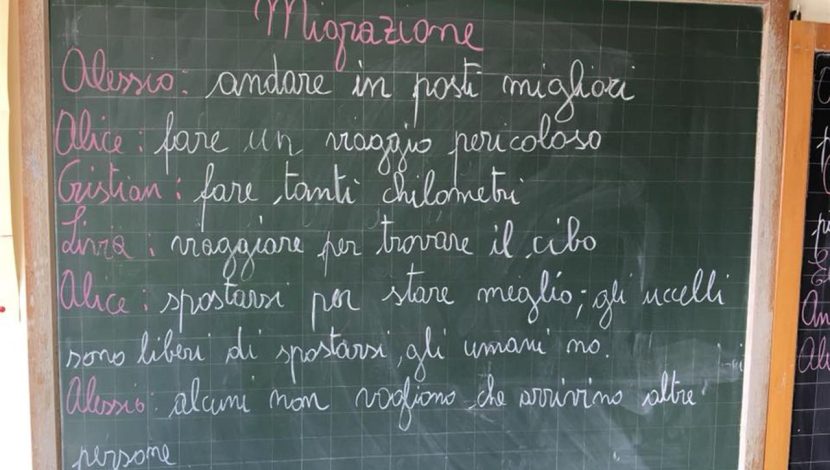 Migrazione
Alessio: andare in posti migliori
Alice: fare un viaggio pericoloso
Cristian: fare tanti chilometri
Livia: viaggiare per trovare il cibo
Alice: spostarsi per stare meglio; gli uccelli
sono liberi di spostarsi, gli umani no.
Alessio: alcuni non vogliono che arrivino altre
persone